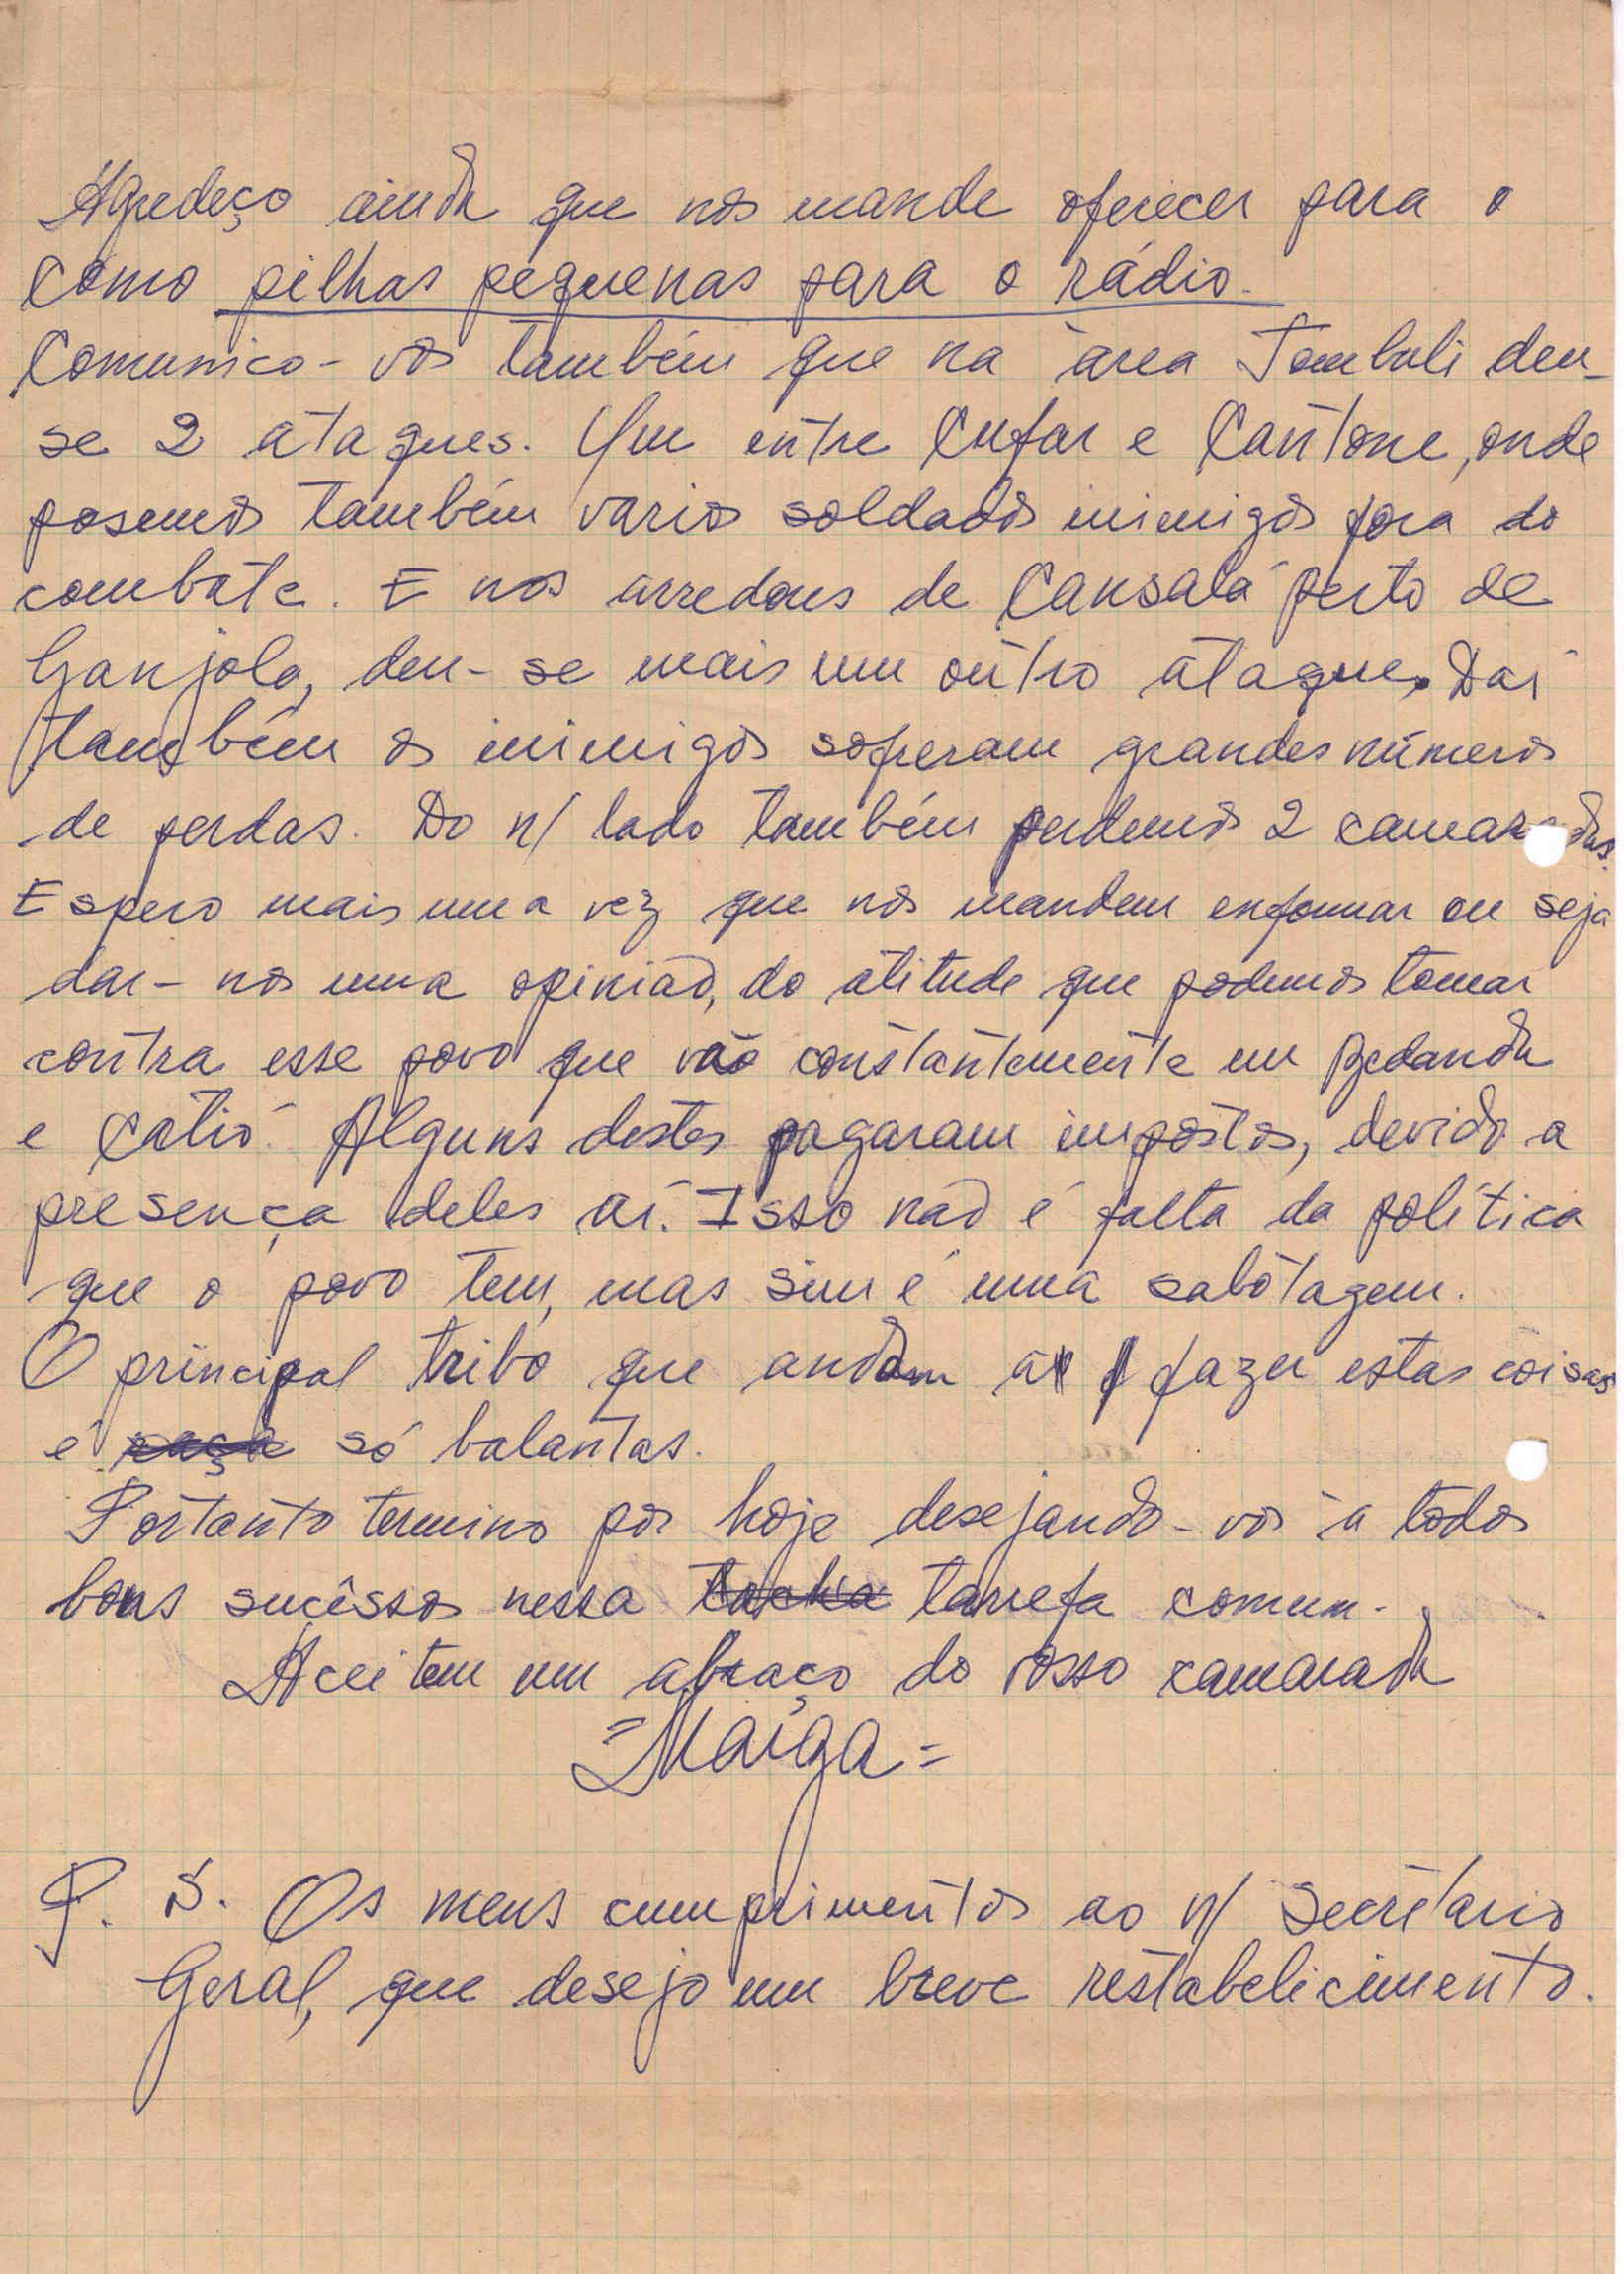 Agredeço ainda que nos mande oferecer para o
Como pilhas pequenas para o rádio.
Comunico-vos também que na àrea Tombali deu-
se 2 ataques. Um entre Cufar e Cantone, onde
posemos também varios soldados inimigos fora do
combate. E nos arredores de Cansalá perto de
Ganjola, deu-se mais um outro ataque. Daí
também os inimigos sofreram grandes números
de perdas. Do n/ lado também perdemos 2 camaradas.
Espero mais uma vez que nos mandem enformar ou seja
dar-nos uma opinião, do atitude que podemos tomar
contra esse povo que vão constantemente em Bedanda
e Catió. Alguns destes pagaram impostos, devido a
presença deles aí. Isso não é falta da política
que o povo tem, mas sim é uma sabotagem.
O principal tribo que andam a fazer estas coisas
é só balantas.
Portanto termino por hoje desejando-vos à todos
bons sucêssos nessa tarrefa comum.
Aceitem um abraço do vosso camarada
=Maiga=
P. S. Os meus cumprimentos ao n/ Secretario
Geral, que desejo um breve restabelicimento.